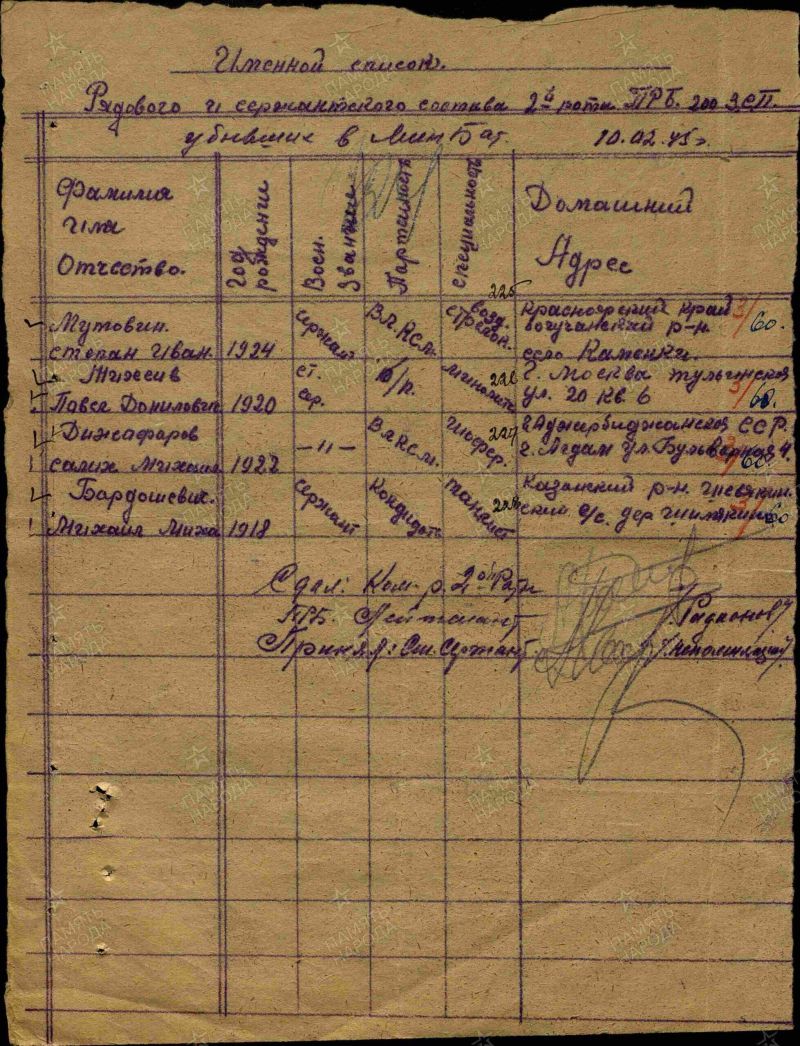 Именной список.
Рядового и сержантского состава 2й роты ПРБ. 200 ЗСП.
убывших в МинБат. 10.02.45г.
Фамилия
Имя
Отчество.
Год рождение
Воен. Звание
Партийность
специальность
Домашний
Адрес
Мутовин.
степан Иван. 1924 сержант ВЛКСМ 225 возд. стрелок. Красноярский край
богучанский р-н.
село Каменка. 3/60.
Михеев
Павел Данилович 1920 ст. сер. б/п. 226 минометч г. Москва тульская
ул. 20 кв 6 3/60.
Джафаров
салих Михаил 1922 —"— ВЛКСМ. 227 шофер. Аджирбиджанской ССР.
г. Агдам ул. Бульварная 4. 3/60.
Бардошевич.
Михаил Миха 1918 сержант Кондидат танкист Казанский р-н.
с/с. дер 3/60
Сдал: Ком. р. 2ой
ПРБ. Лейтенант /Радионов/
Принял: Ст. Сержант
ПАМЯТЬ НАРОДА